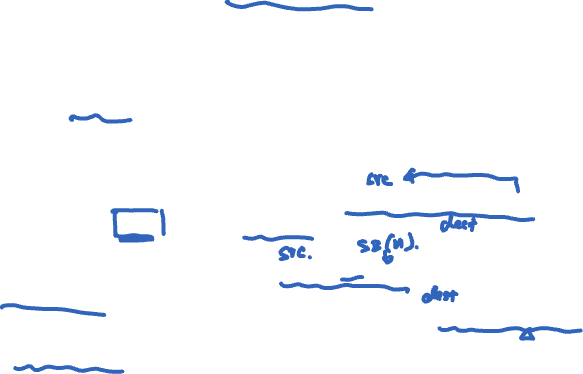 src
dest
src.
dest